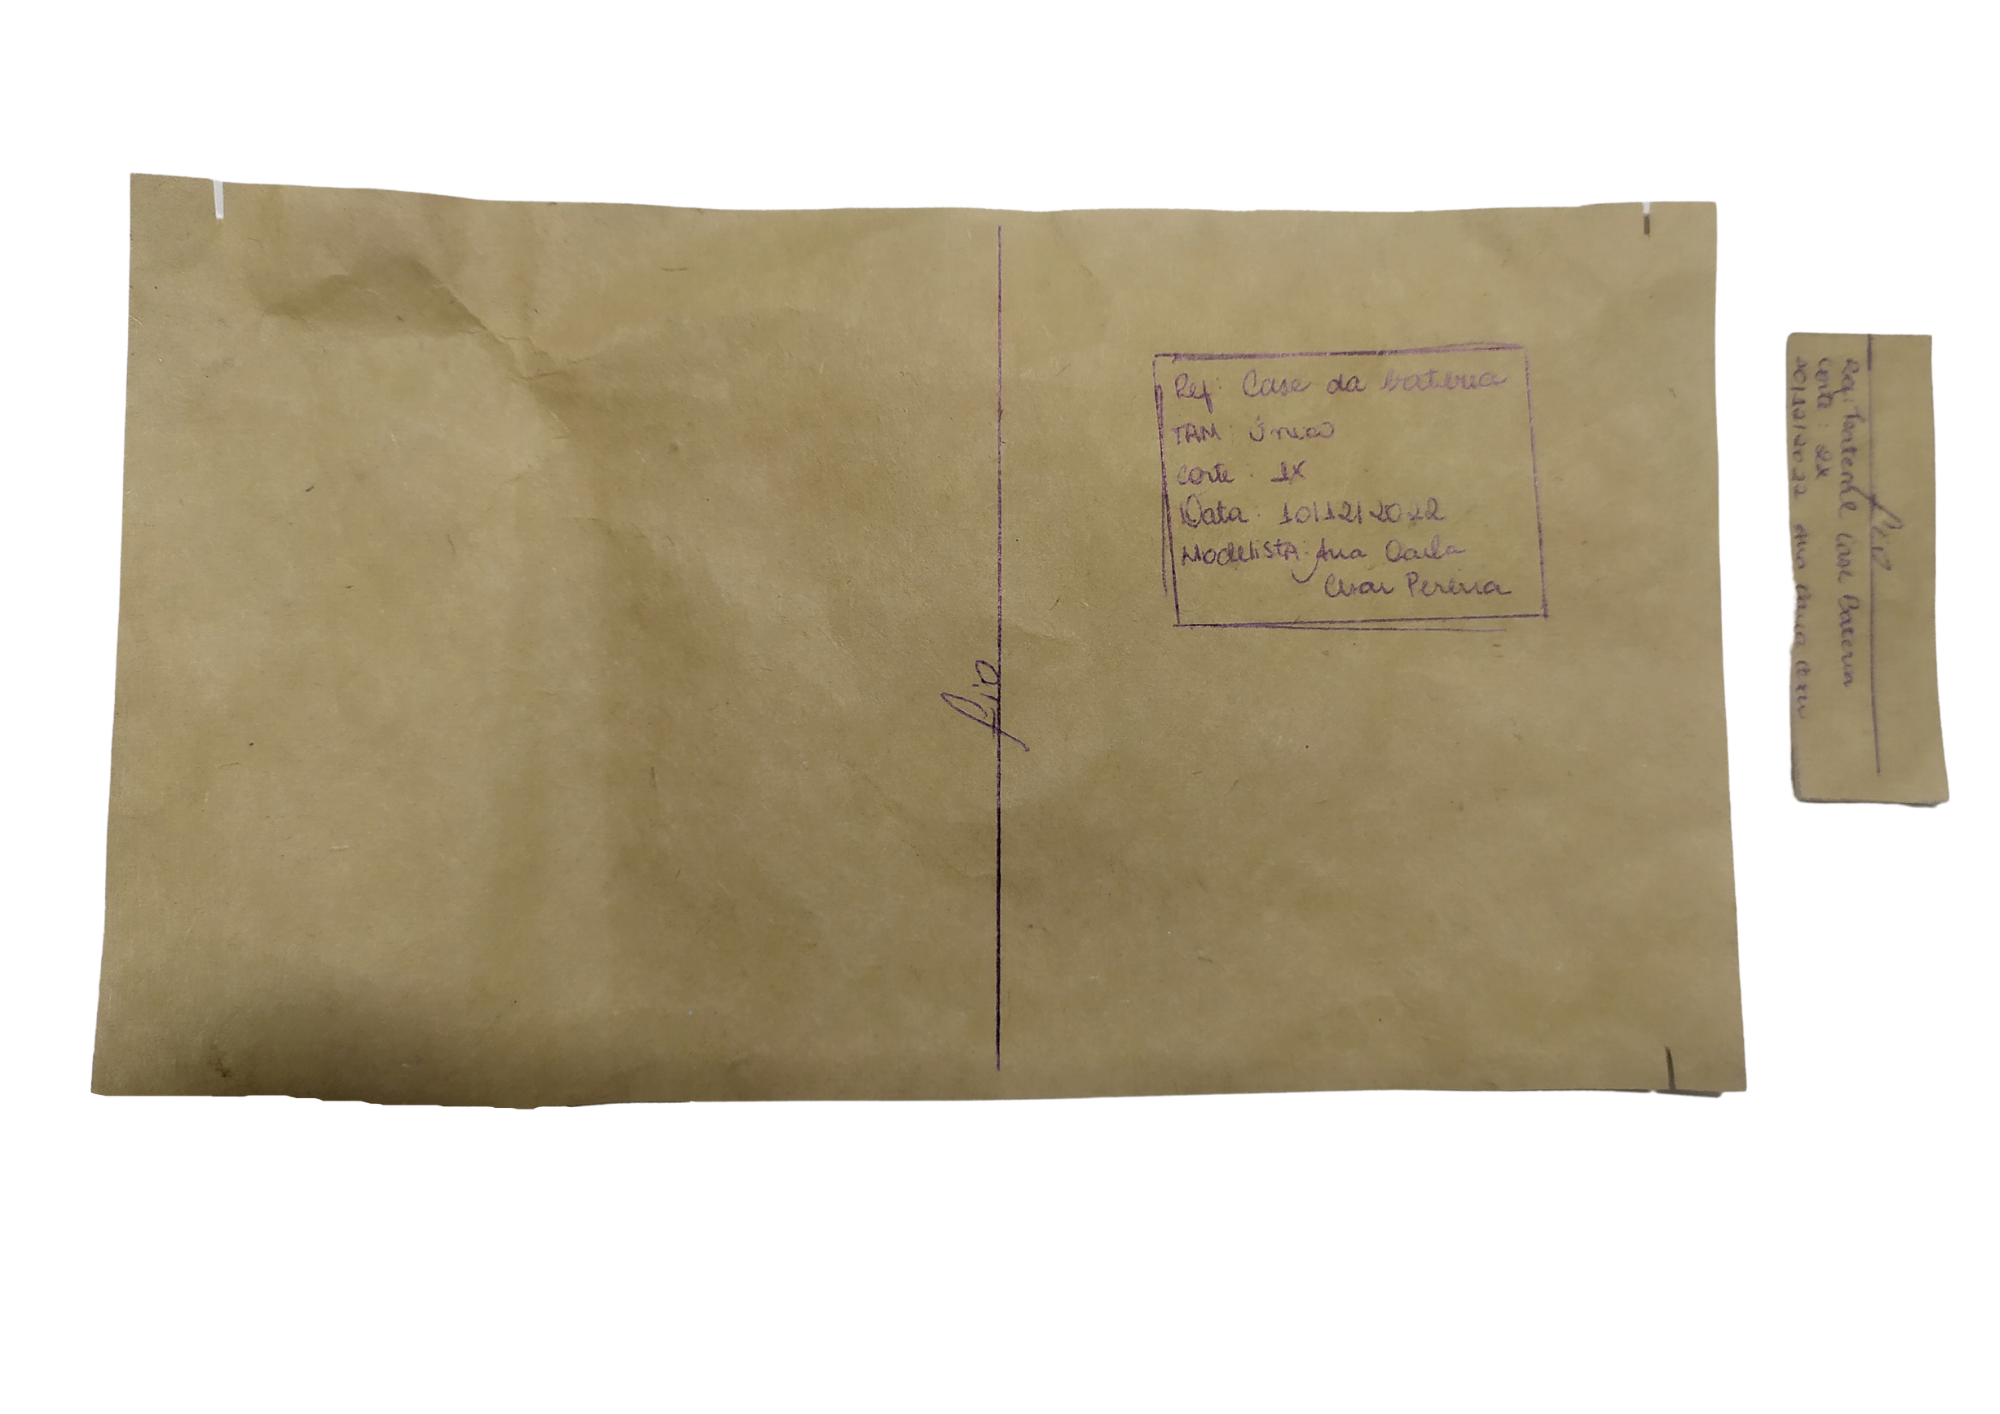 Ref: Case da bateria
TAM: Único
Corte: 1X
Data: 10/12/2022
Modelista: Ana Carla
Cesar Pereira
fio
fio
Ref: Batente Case Bateria
Corte: 2x
10/12/2022 Ana